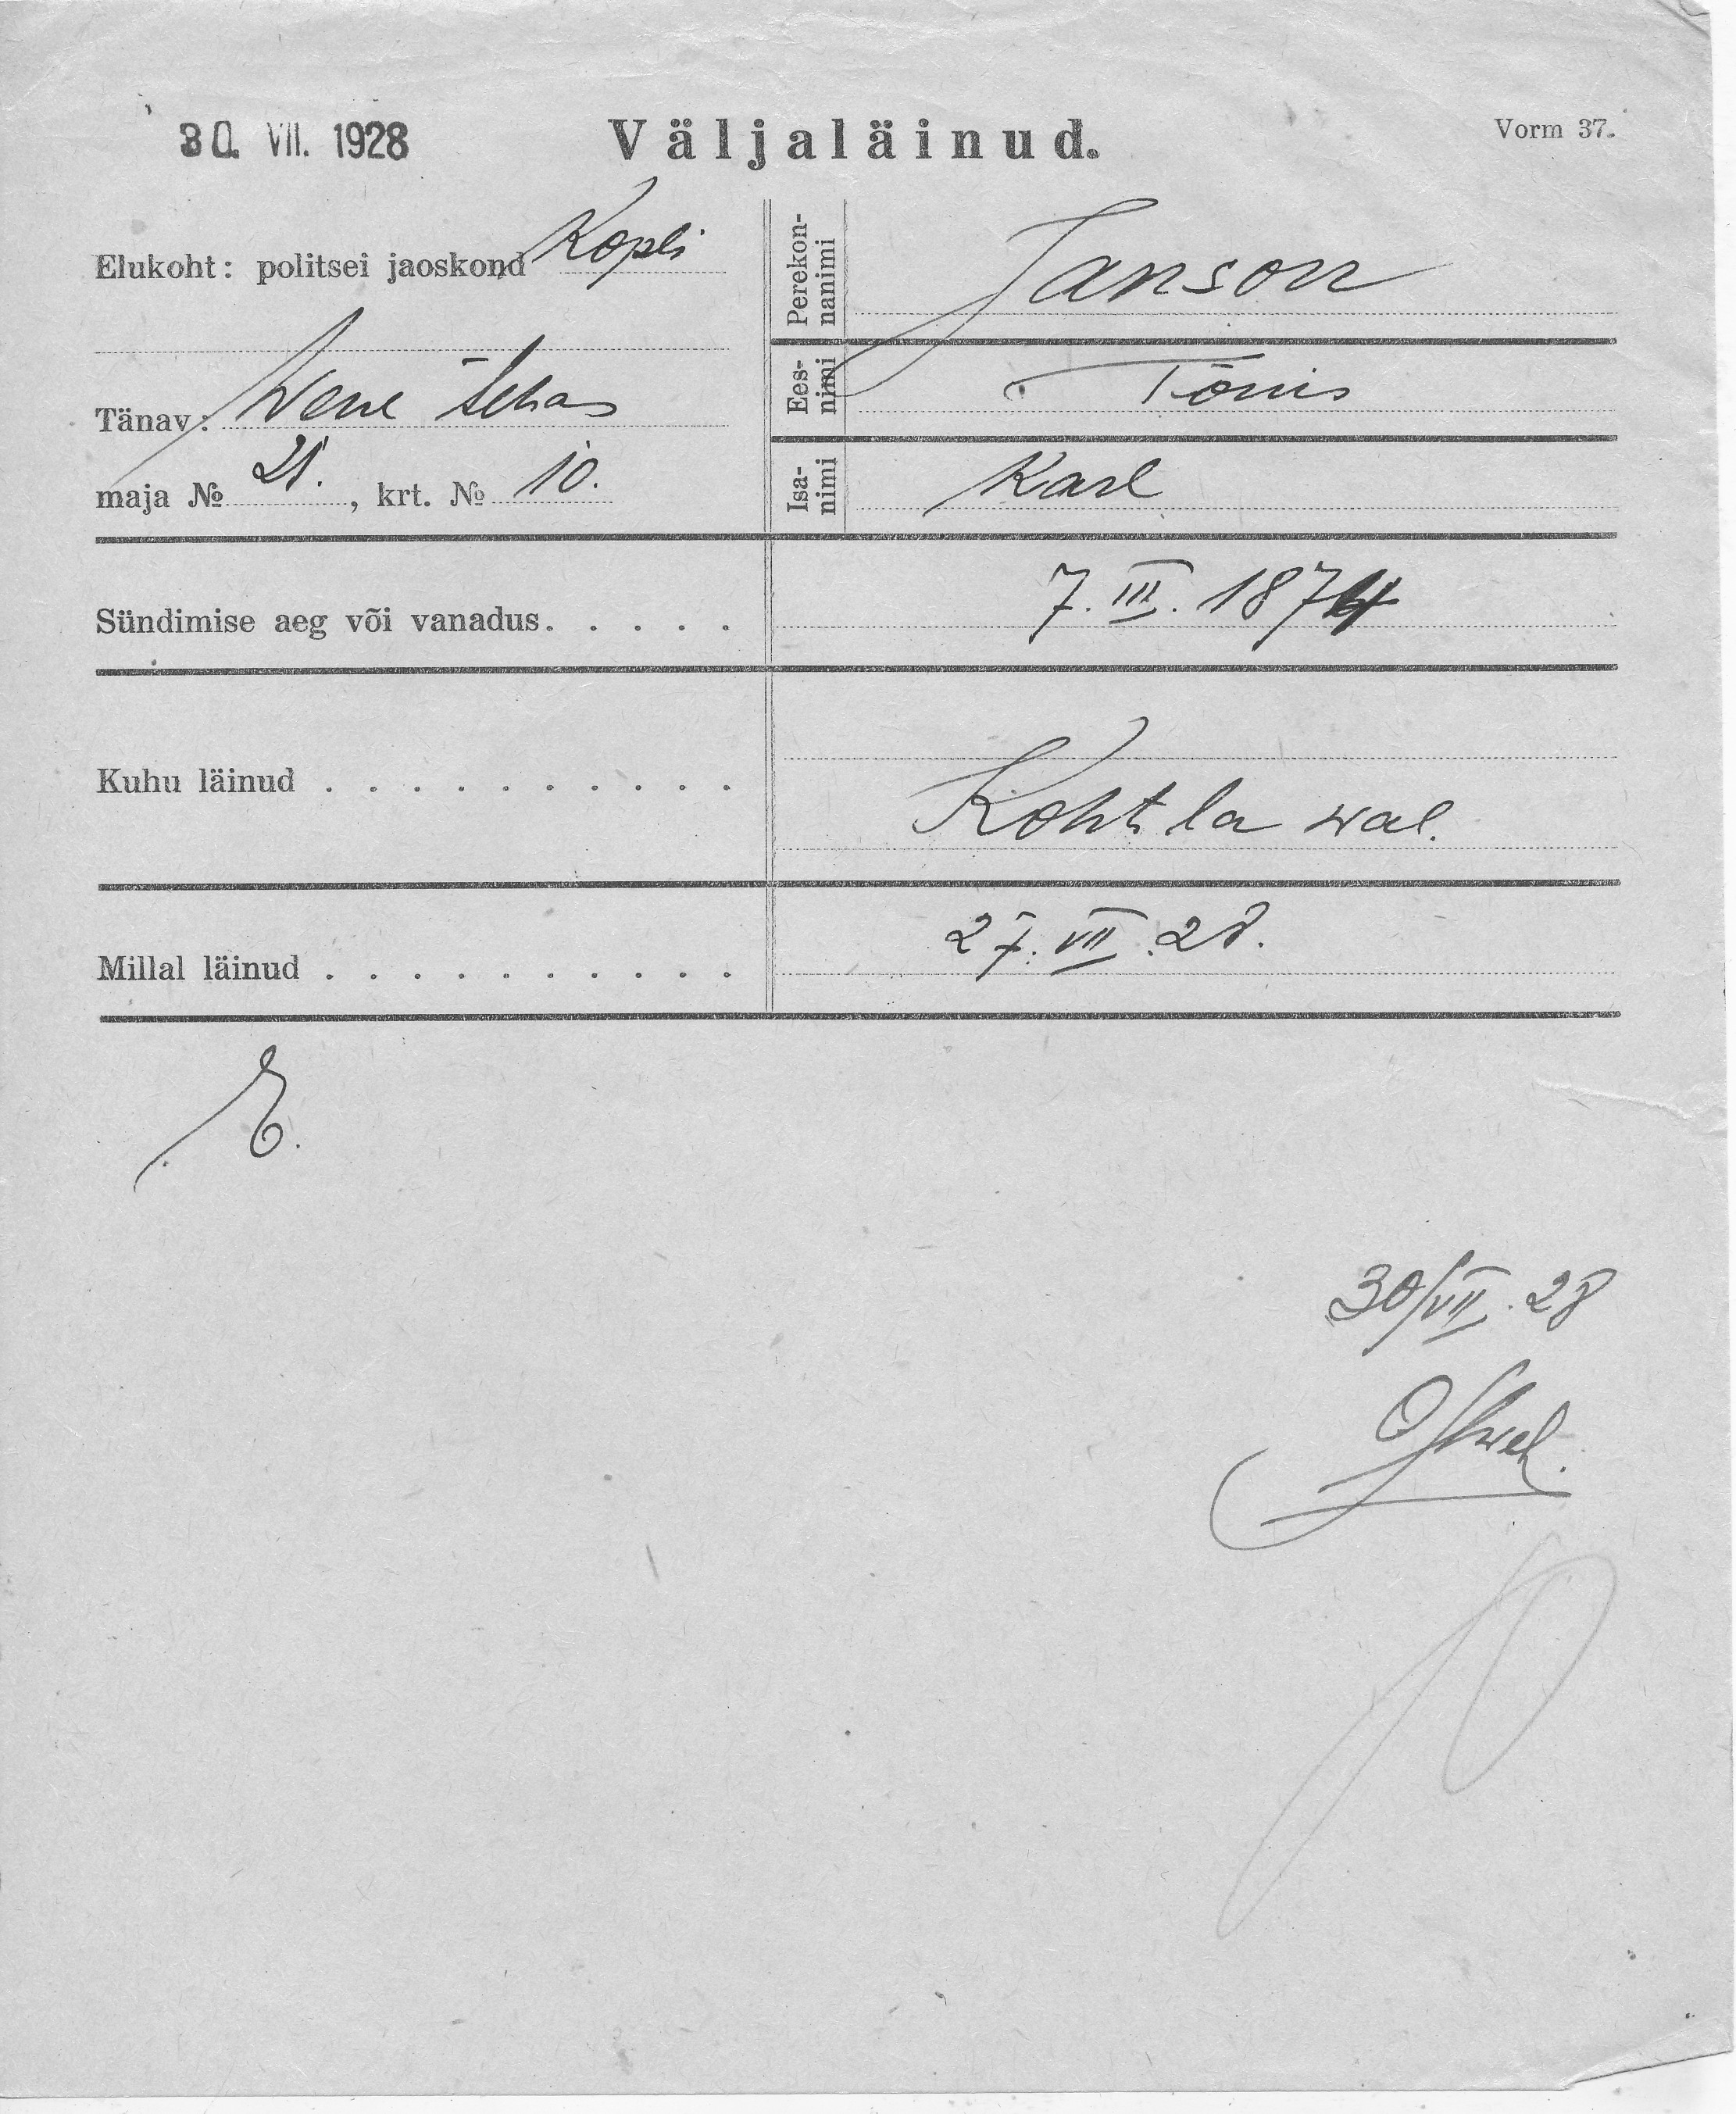 30. VII. 1928
Väljaläinud.
Vorm 37.
Elukoht: politsei jaoskond Kopli
Tänav: Wene tehas
maja № 21. , krt. № 10.
Perekonnanimi Janson
Eesnimi Tõnis
Isanimi Karl
Sündimise aeg või vanadus. . . . . 7. III. 1874
Kuhu läinud . . . . . . . . . . Kohtla wal.
Millal läinud . . . . . . . . . . 27. VII. 28.
E.
30/VII. 28